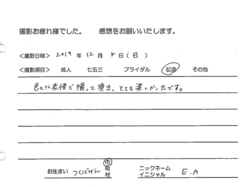 撮影お疲れ様でした。 感想をお願いいたします。
<撮影日時> 2019年 12月 8日(日)
<撮影項目> 成人 七五三 ブライダル 記念 その他
で撮って頂き、とても楽しかったです。
お住まい つくばみらい 市 町 村 ニックネーム イニシャル E.A